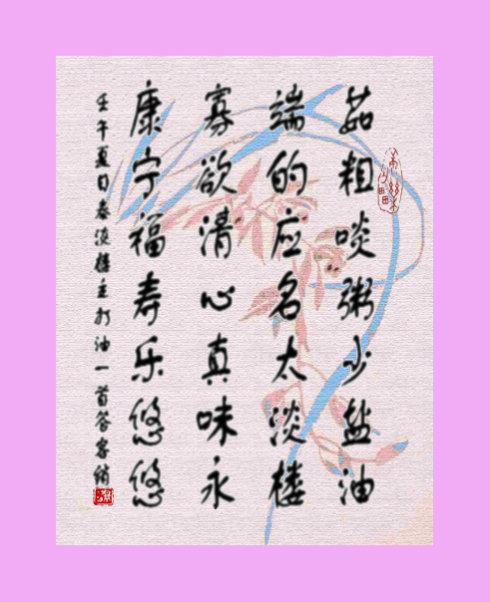 茹粗啖粥少盐油
端的应名太淡楼
寡欲清心真味永
康宁福寿乐悠悠
壬午夏日泰淡楼主打油一首答客诮